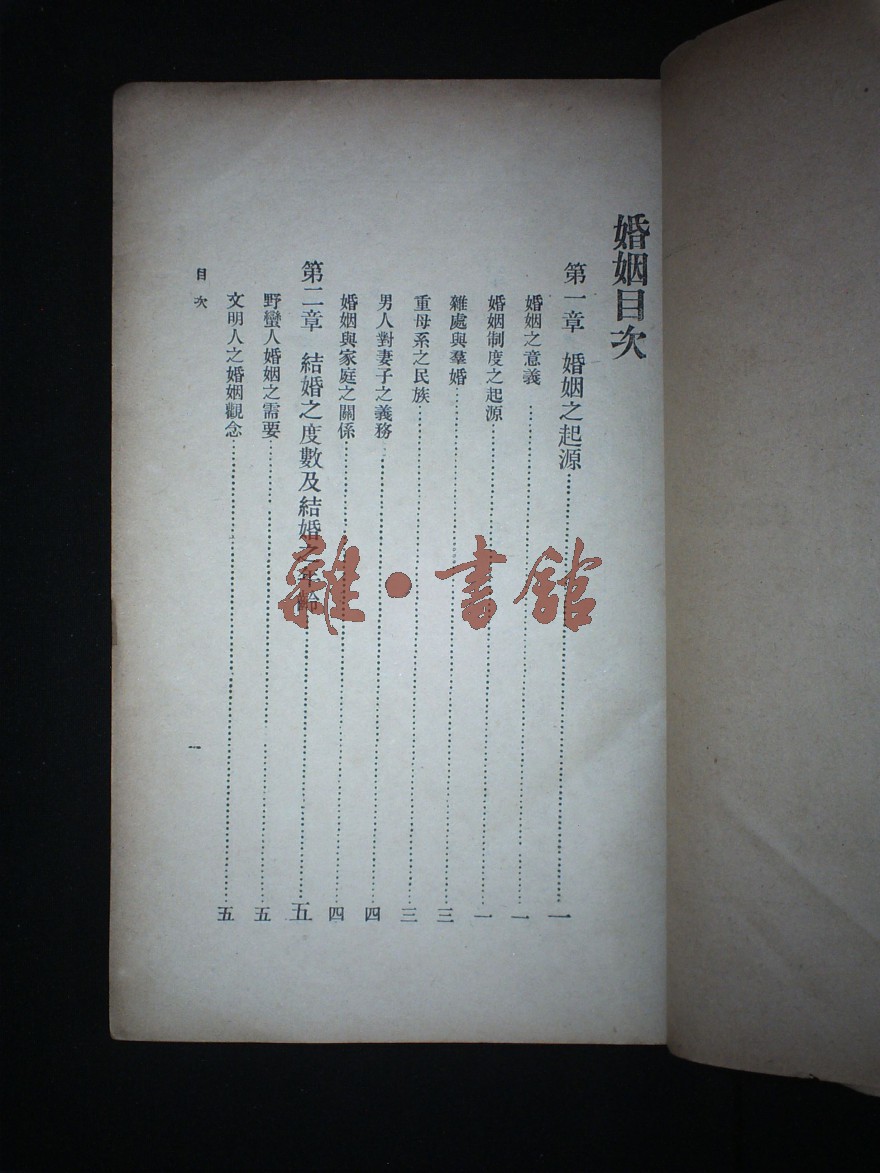 婚姻目次
第一章　婚姻之起源……一
婚姻之意義……一
婚姻制度之起源……一
雜處與羣婚……三
重母系之民族……三
男人對妻子之義務……四
婚姻與家庭之關係……四
第二章　結婚之度數及結婚之年齡……五
野蠻人婚姻之需要……五
文明人之婚姻觀念……五
目次
一
雜·書館